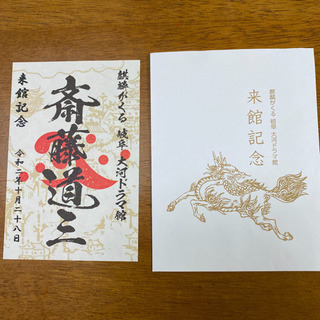 麒麟がくる 岐阜 大河ドラマ館
斎藤道三
来館記念
令和二年十月二十八日
麒麟がくる 岐阜 大河ドラマ館
来館記念